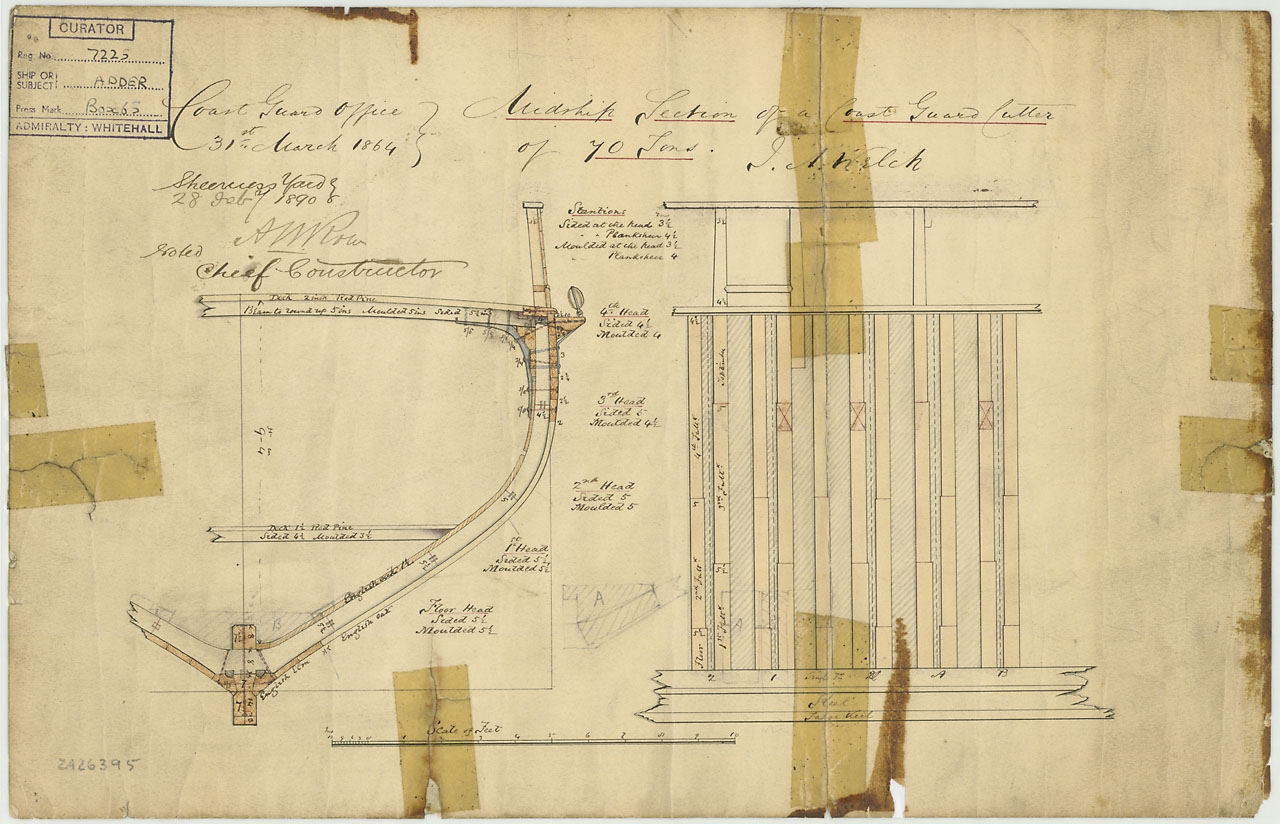 CURATOR
Reg No. 7225
SHIP OR SUBJECT ADDER
Press Mark Box 65
ADMIRALTY: WHITEHALL
Coast Guard Office
31st March 1864
Midship Section of a Coast Guard Cutter
of 70 Tons.
J. A. Welch
Sheerness Yard
28 Feby 1890
Noted
Chief Constructor
Stantions
Sided at the head 3½
" " Planksheer 4½
Moulded at the head 3½
" Planksheer 4
Deck 2 inch Red Pine
Beam to round up 5 ins Moulded 5 ins Sided 5½ ins
4th Head
Sided 4½
Moulded 4
3rd Head
Sided 5
Moulded 4½
2nd Head
Sided 5
Moulded 5
Deck 1½ Red Pine
Sided 4½ Moulded 3½
1st Head
Sided 5½
Moulded 5½
Floor Head
Sided 5½
Moulded 5½
English oak
English oak
English Elm
A
B
4th Futtk
3rd Futtk
2nd Futtk
1st Futtk
Floor
2
1
A
B
Keel
False Keel
Scale of Feet
1 2 3 4 5 6 7 8 9 10
ZAZ6395